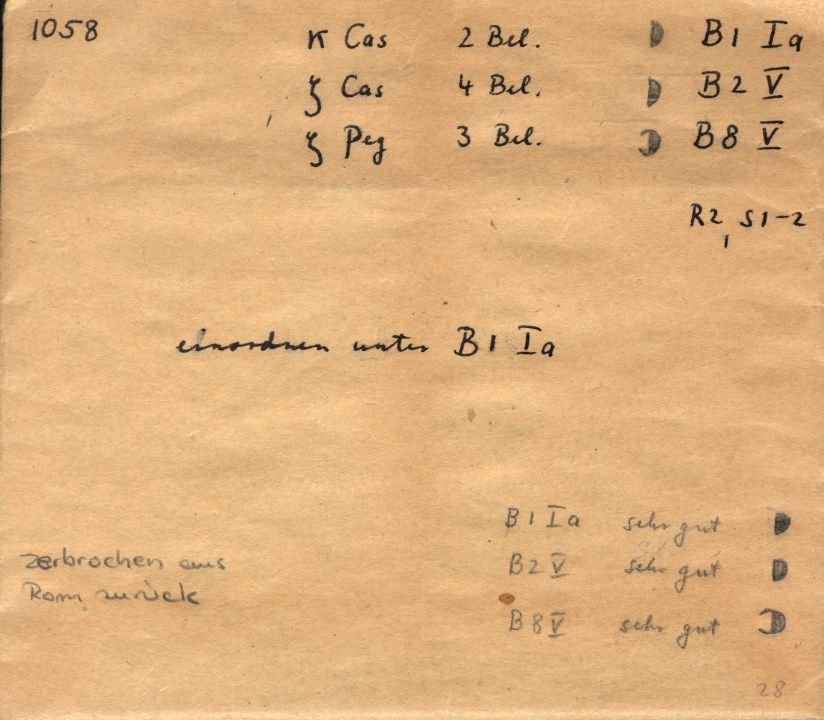 1058
κ Cas 2 Bel. B1 Ia
ζ Cas 4 Bel. B2 V
ζ Peg 3 Bel. B8 V
R2, S1-2
einordnen unter B1 Ia
B1 Ia sehr gut
zerbrochen aus
B2 V sehr gut
Rom zurück
B8 V sehr gut
28